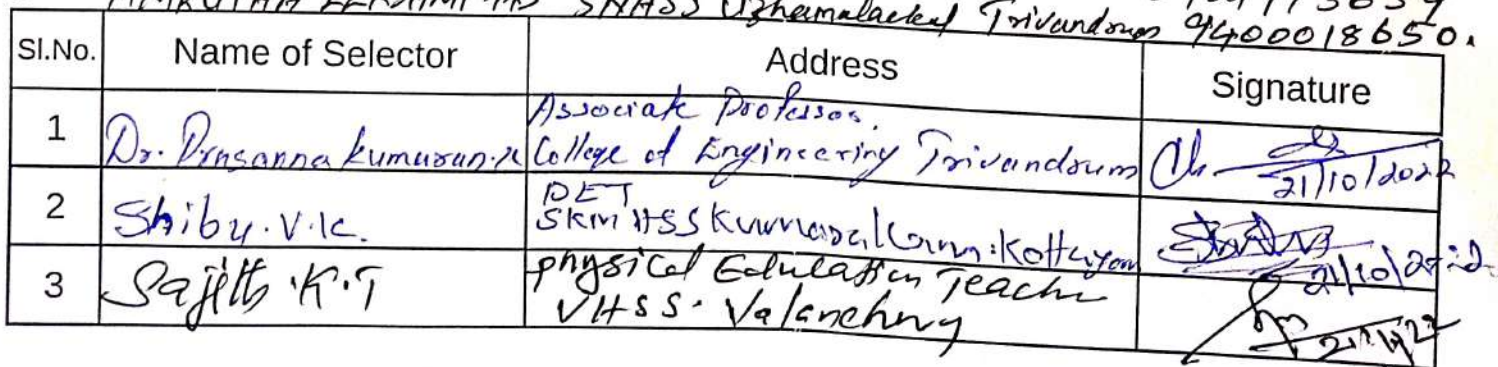 SNHSS Uzhamalackal Trivandrum 9400018650.
Sl.No. Name of Selector Address Signature
1 Dr. Prasanna Kumaran.K Associate Professor,
College of Engineering Trivandrum 21/10/2022
2 Shiby.V.K. PET
SKM HSS Kumarakom:Kottayam 21/10/2022
3 Sajith.K.T Physical Education Teacher
VHSS. Valanchery